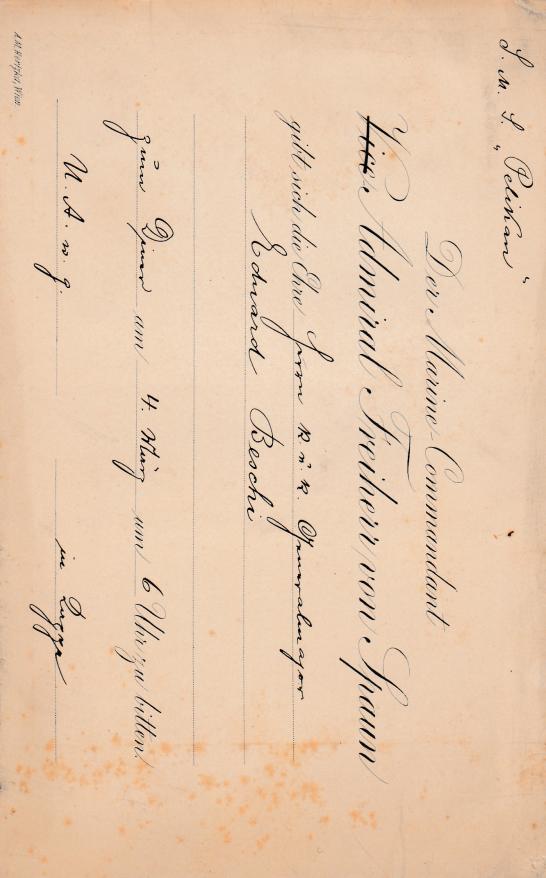 S. M. S. „Pelikan"
Der Marine-Commandant
Vice Admiral Freiherr von Spaun
gibt sich die Ehre Herrn k. u. k. Generalmajor
Eduard Beschi
zum Diner am 4. März um 6 Uhr zu bitten.
U. A. w. g.
in Pola